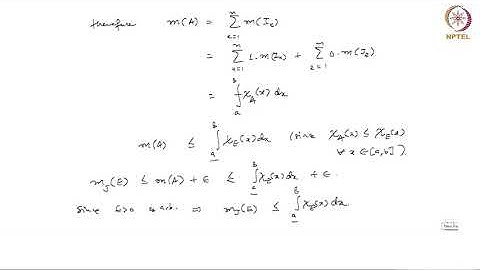 NPTEL
therefore m(A) = \sum_{i=1}^{n} m(I_i)
= \sum_{i=1}^{n} 1. m(I_i) + \sum_{i=1}^{n} 0. m(J_i)
= \int_a^b χ_A(x) dx
m(A) ≤ \underline{\int_a^b} χ_E(x) dx (since χ_A(x) ≤ χ_E(x) ∀ x ∈ [a,b]).
m_J(E) ≤ m(A) + ε ≤ \underline{\int_a^b} χ_E(x) dx + ε.
Since ε>0 is arb. ⇒ m_J(E) ≤ \underline{\int_a^b} χ_E(x) dx.